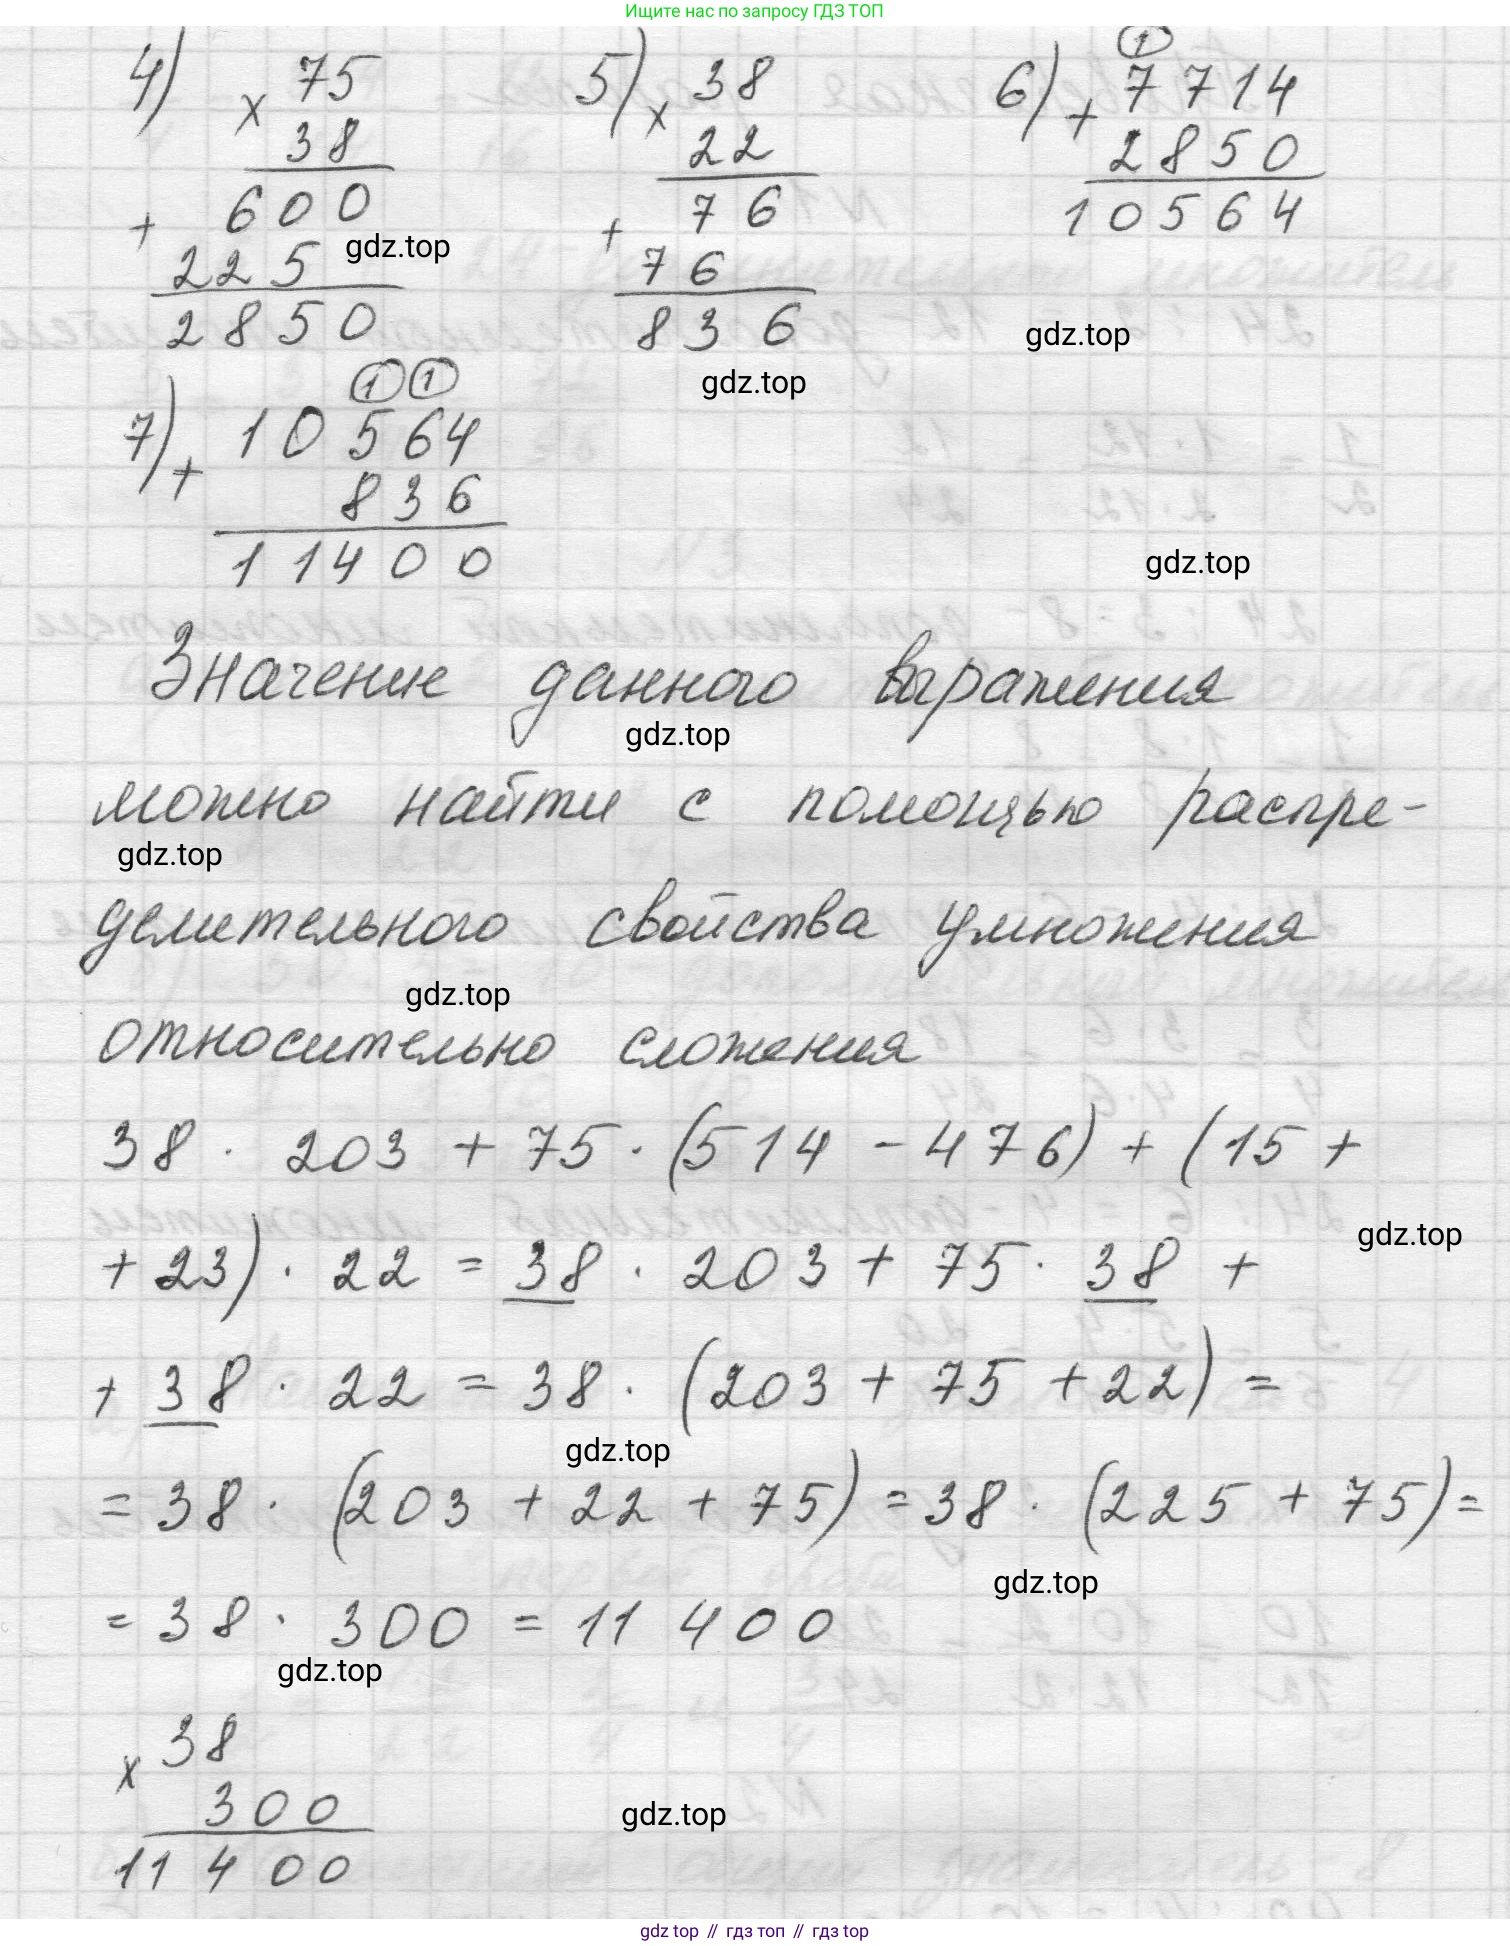 Ищите нас по запросу ГДЗ ТОП
4) × 75
38
+ 600
225
2850
gdz.top
5) × 38
22
+ 76
76
836
gdz.top
6) + ① 7714
2850
10564
gdz.top
7) + ① ①
10564
836
11400
gdz.top
Значение данного выражения
gdz.top
можно найти с помощью распре-
gdz.top
делительного свойства умножения
gdz.top
относительно сложения
38 · 203 + 75 · (514 - 476) + (15 +
gdz.top
+ 23) · 22 = 38 · 203 + 75 · 38 +
+ 38 · 22 = 38 · (203 + 75 + 22) =
gdz.top
= 38 · (203 + 22 + 75) = 38 · (225 + 75) =
gdz.top
= 38 · 300 = 11 400
gdz.top
× 38
300
11 400
gdz.top
gdz top // гдз топ // гдз top